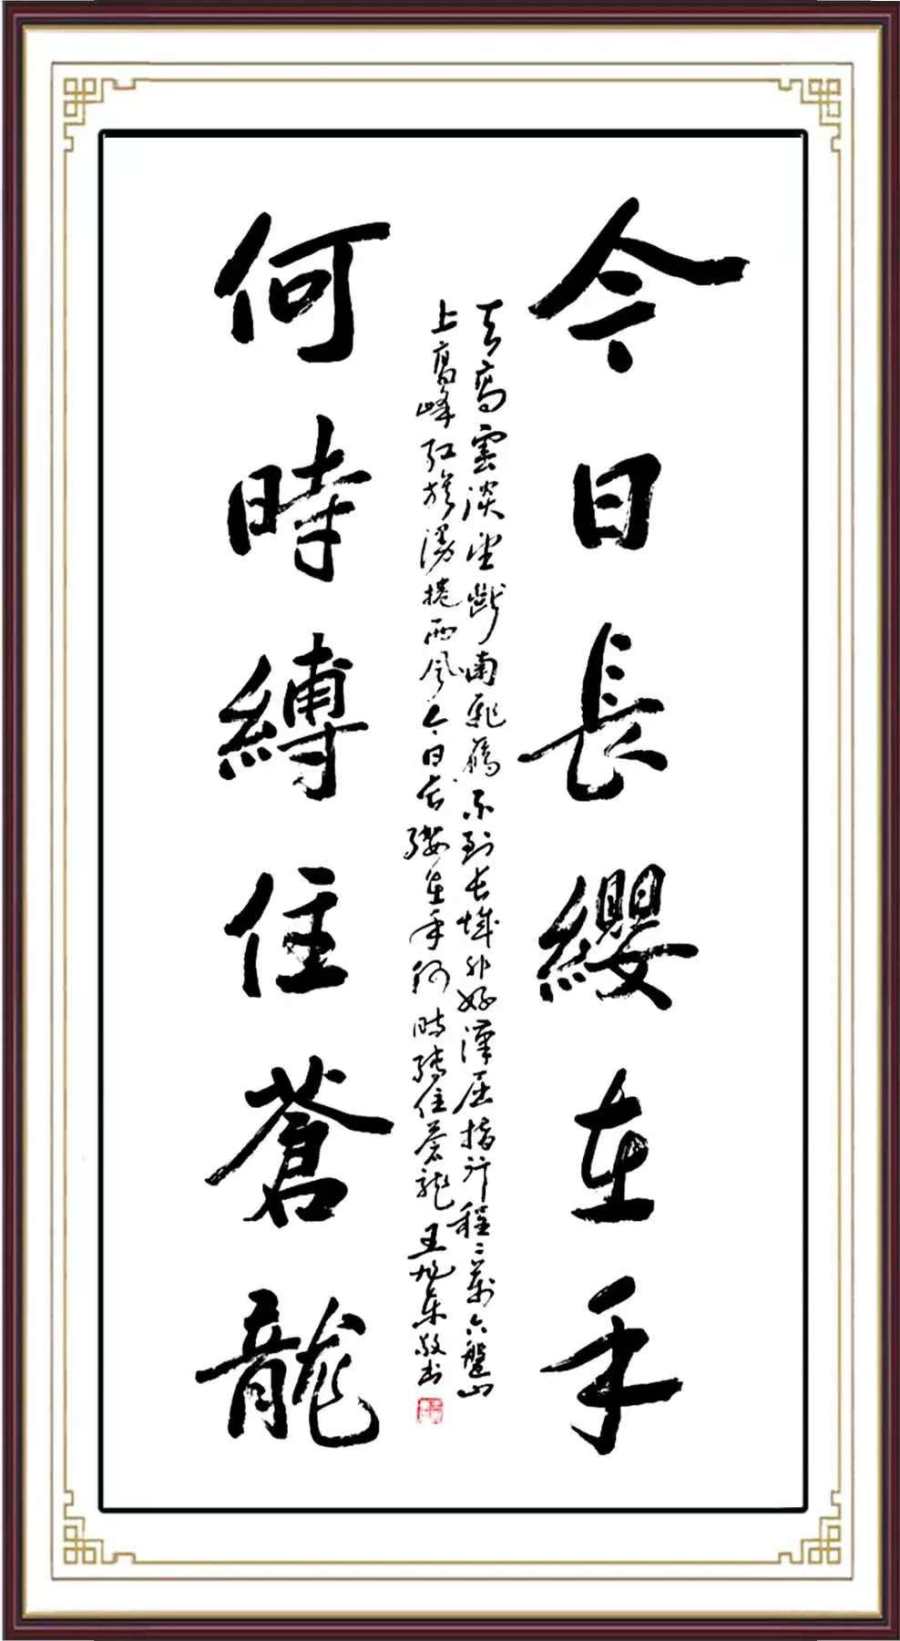 今日長纓在手
天高雲淡望斷南飛雁不到長城外好漢屈指行程二萬六盤山
上高峰紅旗漫捲西風今日長纓在手何時縛住蒼龍王旭東敬书
何時縛住蒼龍